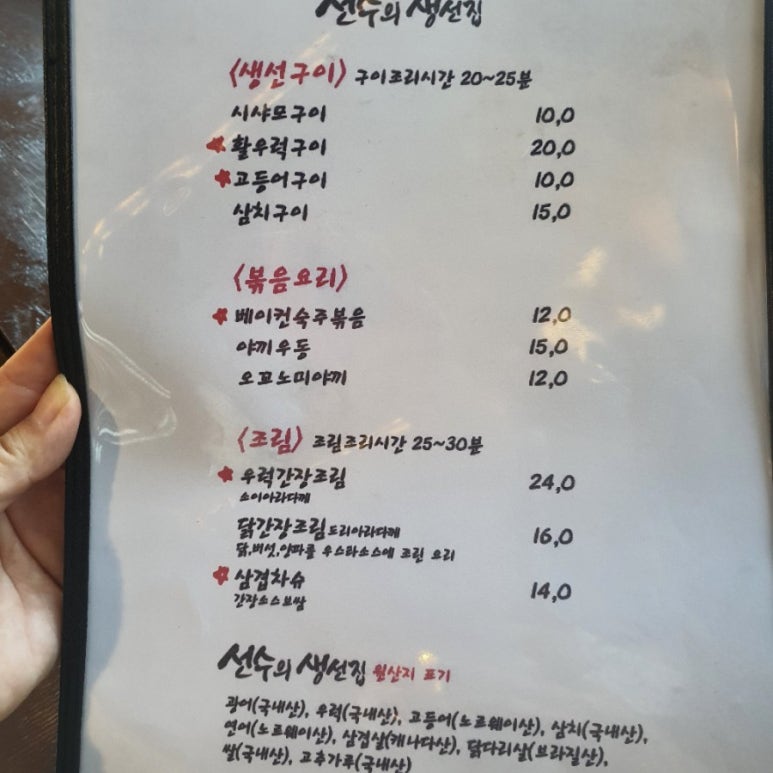 선수의 생선집
<생선구이> 구이조리시간 20~25분
시샤모구이 10,0
활우럭구이 20,0
고등어구이 10,0
삼치구이 15,0
<볶음요리>
베이컨숙주볶음 12,0
야끼우동 15,0
오꼬노미야끼 12,0
<조림> 조림조리시간 25~30분
우럭간장조림 24,0
소이아라다께
닭간장조림 도리아라다께 16,0
닭,버섯,양파를 우스라소스에 조린 요리
삼겹차슈 14,0
간장소스보쌈
선수의 생선집 원산지 표기
광어(국내산), 우럭(국내산), 고등어(노르웨이산), 삼치(국내산),
연어(노르웨이산), 삼겹살(캐나다산), 닭다리살(브라질산),
쌀(국내산), 고추가루(국내산)